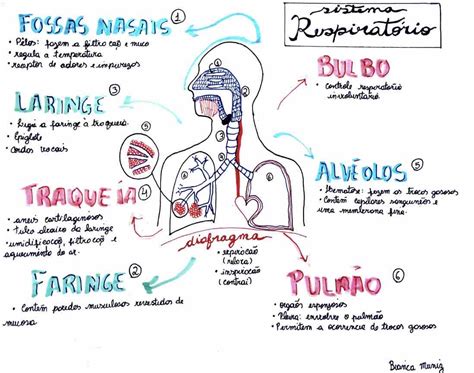 sistema
Respiratório
FOSSAS NASAIS 1
• Pêlos: fazem a filtração e muco
• regula a temperatura
• receptor de odores e impurezas
BULBO
• controle respiratório
involuntário
LARINGE 3
• Liga a faringe à traqueia
• Epiglote
• Cordas vocais
ALVÉOLOS 5
• Hematose: fazem as trocas gasosas
• Contém capilares sanguíneos e
uma membrana fina
TRAQUEIA 4
• anéis cartilaginosos
• tubo abaixo da laringe
• umidificação, filtração e
aquecimento do ar.
diafragma
• expiração
(relaxa)
• inspiração
(contrai)
FARINGE 2
• Contém paredes musculosas revestidas de
mucosa
PULMÃO 6
• órgãos esponjosos
• Pleura: envolve o pulmão
• Permitem a ocorrência de trocas gasosas
Bianca Muniz